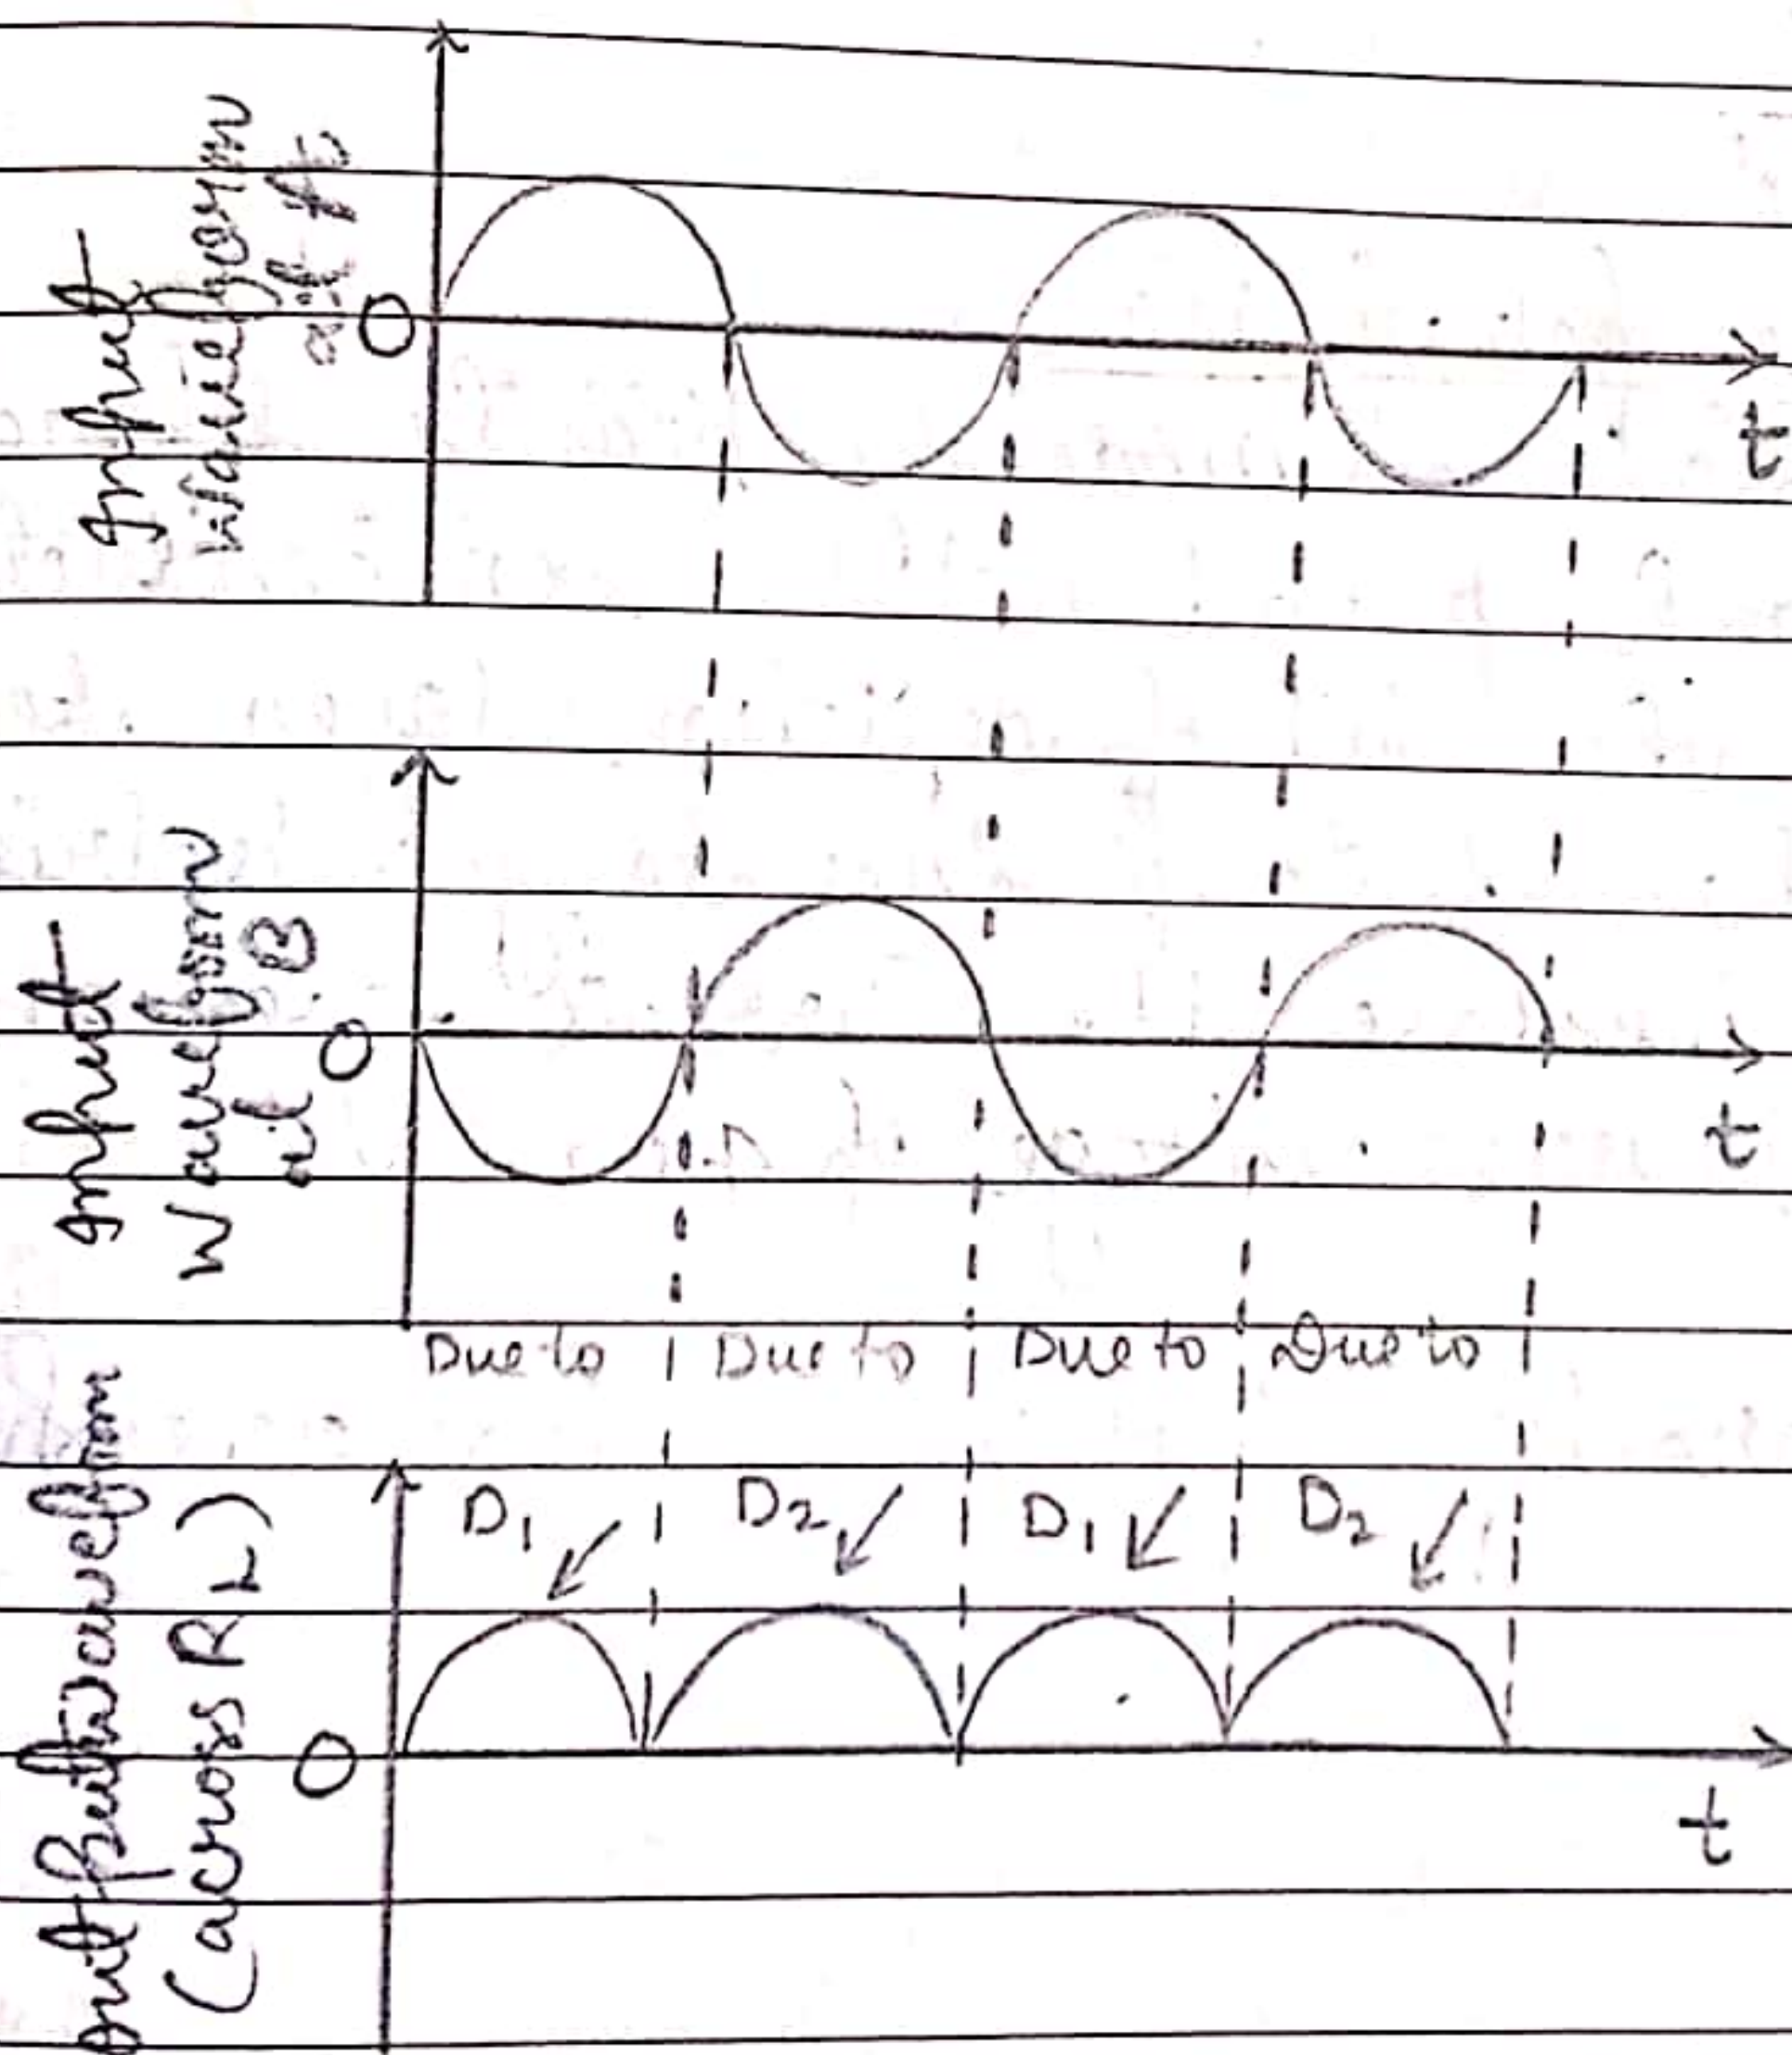 Input
Waveform
at A
O
t
Input
Waveform
at B
O
t
Due to Due to Due to Due to
D1 D2 D1 D2
Output waveform
(across RL)
O
t